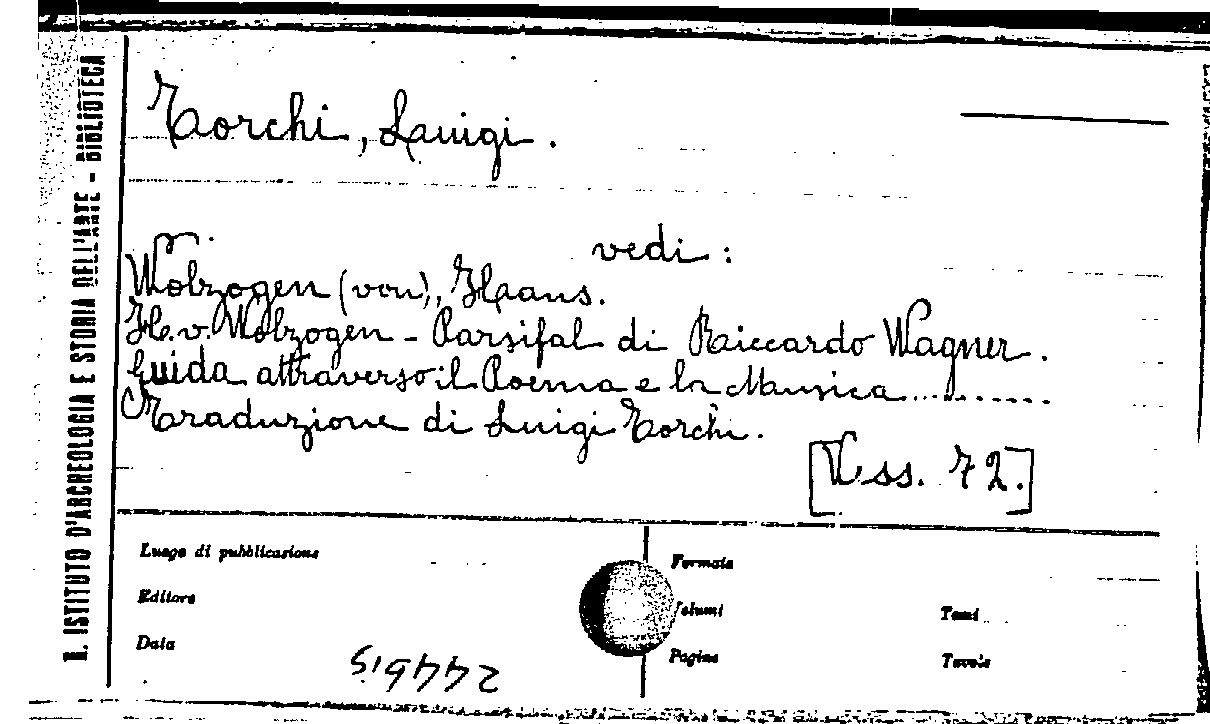 R. ISTITUTO D'ARCHEOLOGIA E STORIA DELL'ARTE - BIBLIOTECA
Torchi, Luigi.
vedi:
Wolzogen (von), Hans.
H. v. Wolzogen - Parsifal di Riccardo Wagner.
Guida attraverso il Poema e la Musica...........
Traduzione di Luigi Torchi.
[V.ss. 72.]
Luogo di pubblicazione
Formato
Editore
Volumi
Tomi
Data
Pagine
Tavole